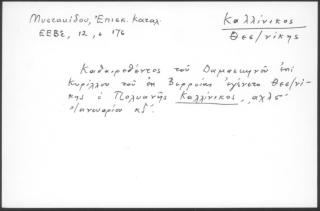 Μυστακίδου, Ἐπισκ. Καταλ.
ΕΕΒΣ, 12, σ 176
Καλλίνικος
Θεσ/νίκης
Καθαιρεθέντος τοῦ Δαμασκηνοῦ ἐπὶ
Κυρίλλου τοῦ ἐκ Βερροίας ἐγένετο Θεσ/νί-
κης ὁ Πολυανῆς Καλλίνικος, ,αχλσ΄
Ἰανουαρίου κδ΄.